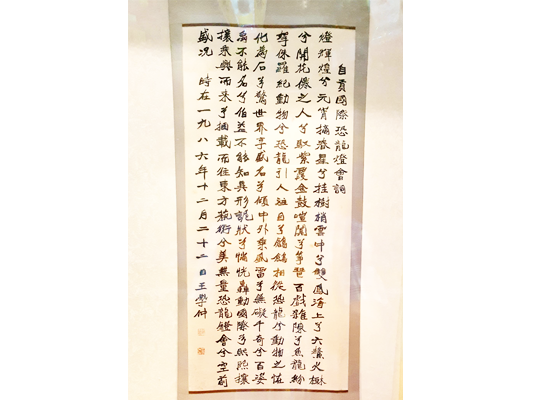 自貢國際恐龍燈會詞
燈輝煌兮元宵摘眾星兮挂樹梢雲中兮雙鳳海上兮六鰲火樹
兮開花僊之人兮馭紫霞金鼓喧闐兮箏琶百戲雜陳兮魚龍紛
拏侏羅紀動物兮恐龍引人注目兮相從恐龍兮動物之怪
化為石兮驚世界享盛名兮傾中外乘風雷兮無礙千奇兮百姿
禹不能名兮伯益不能知異形詭狀兮惝恍轟動國際兮熙熙攘
攘乘興而來兮捆載而往東方藝術兮美無量恐龍燈會兮空前
盛況 時在一九八六年十二月二十二日王學仲